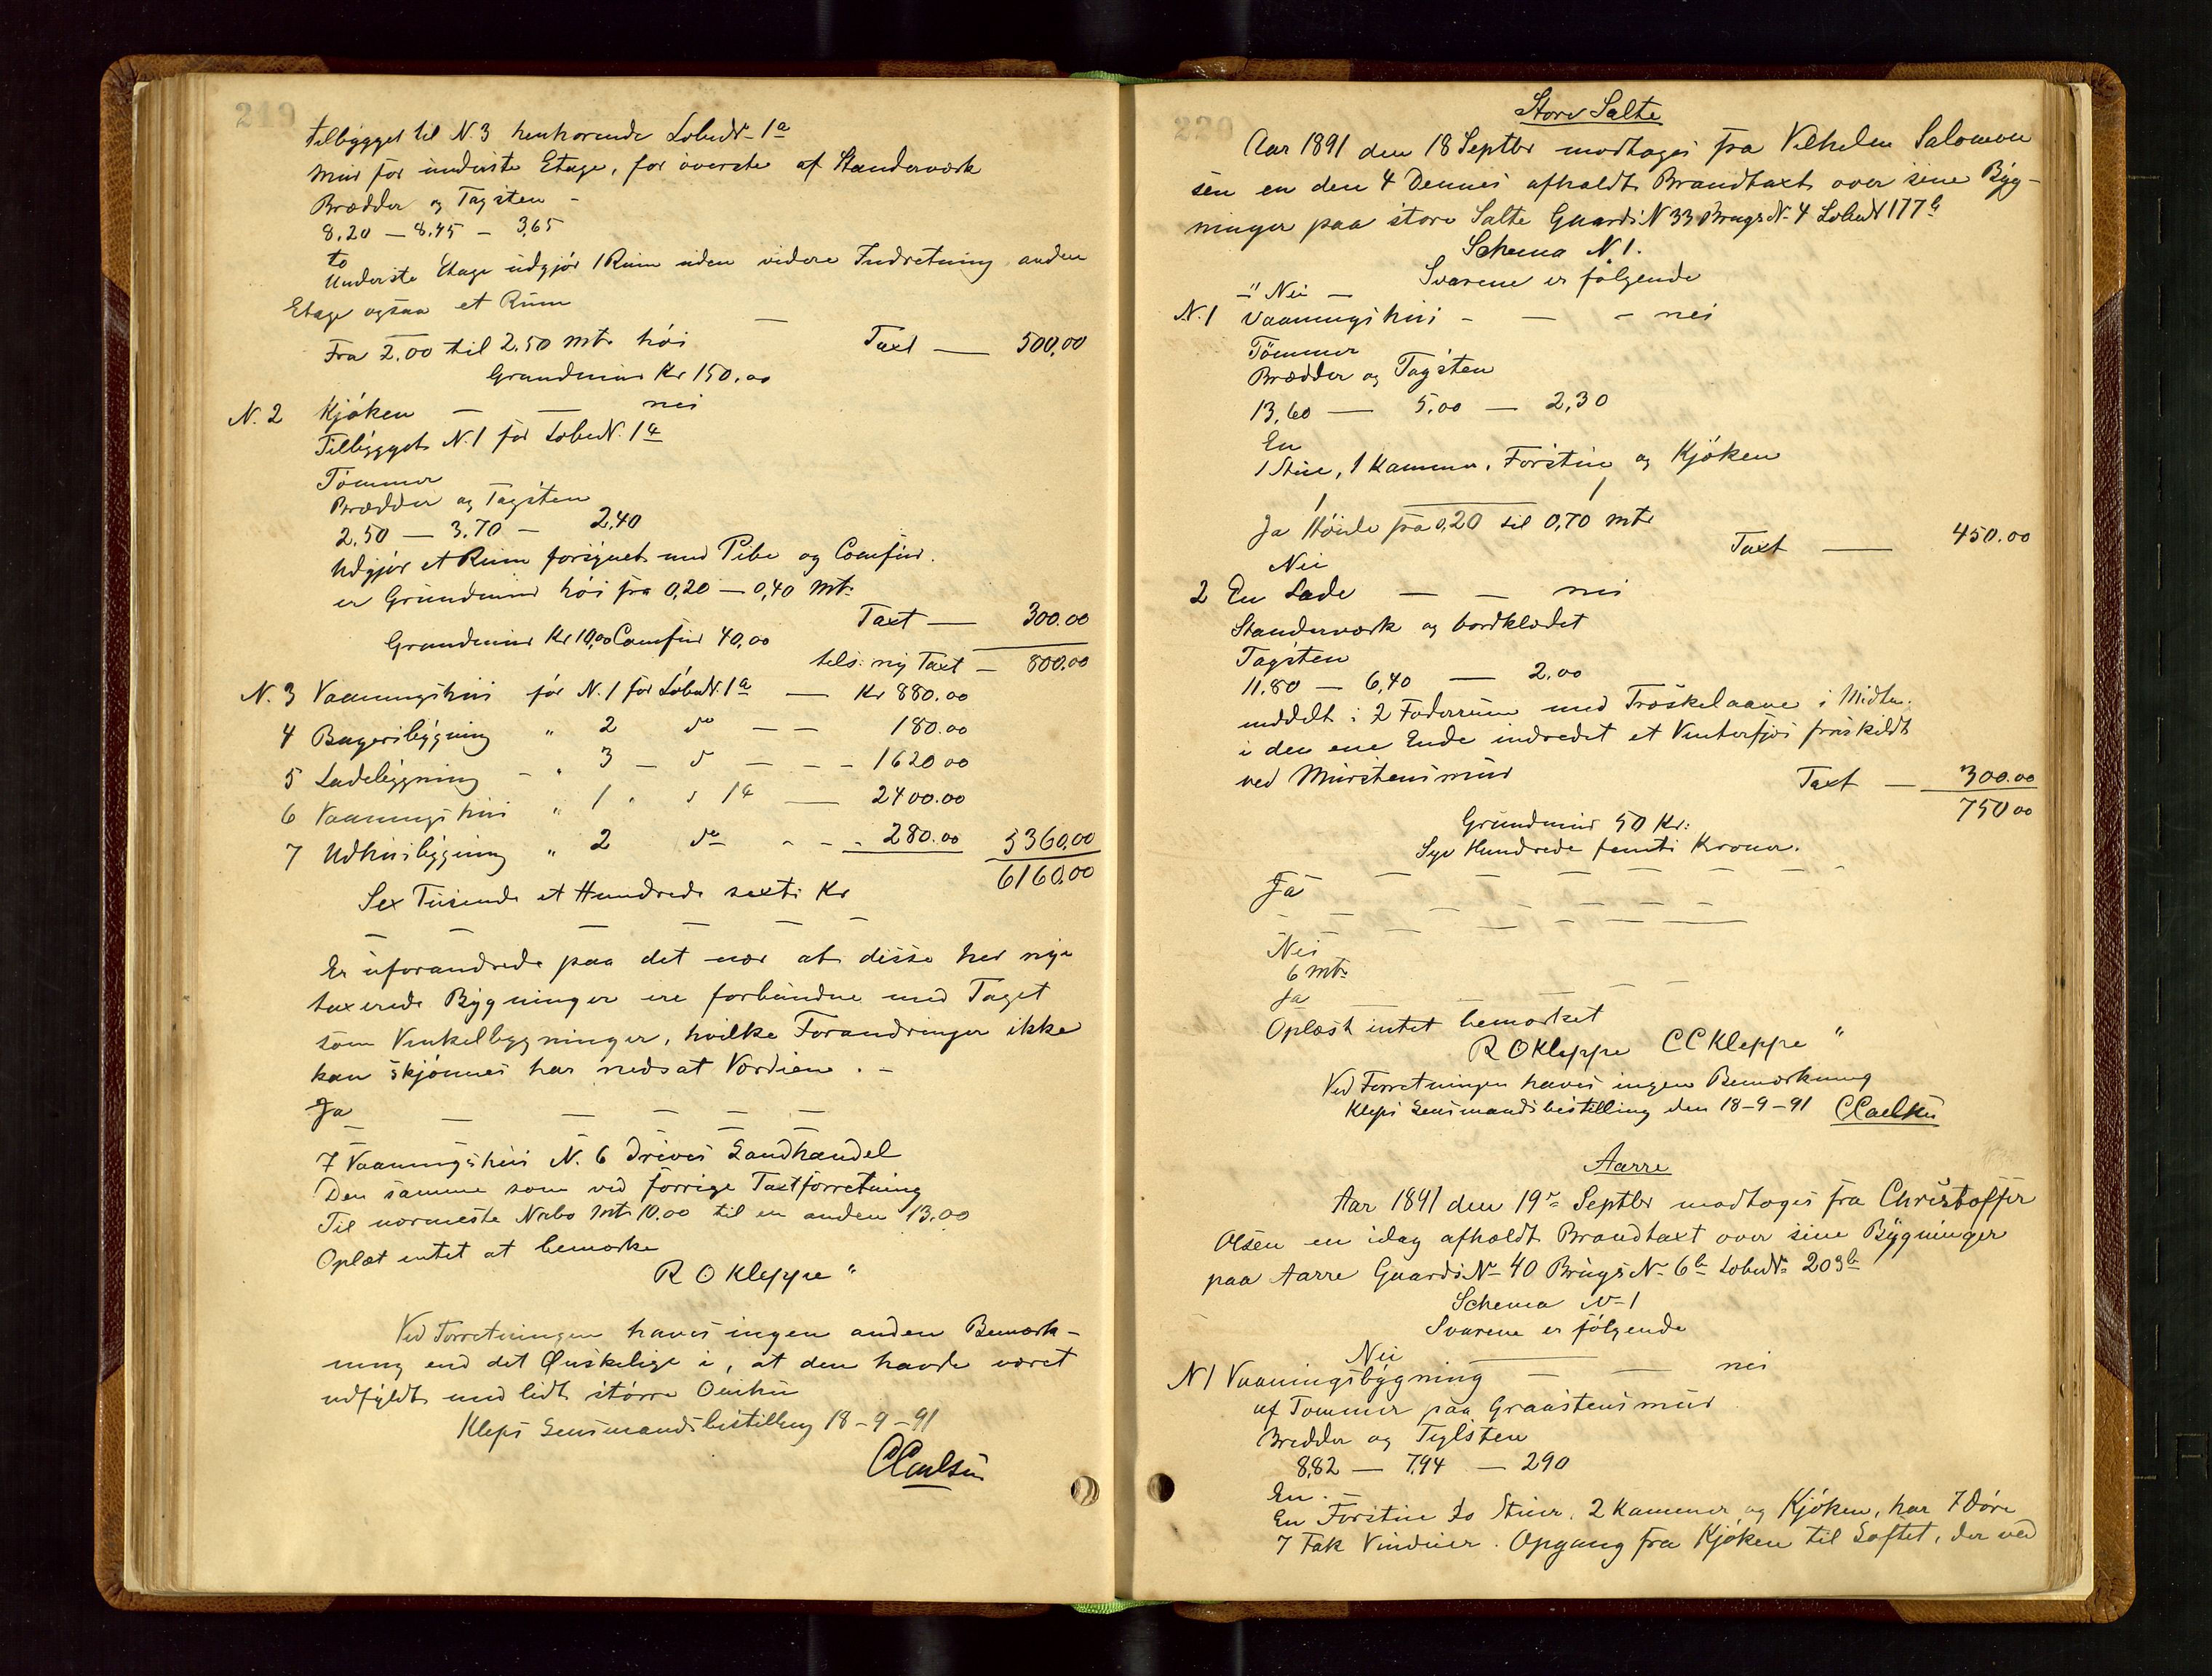 219
tilbygget til N. 3 henhørende LøbeN. 1a
Mur for underste Etage, for øverste af Standerværk
Brædder og Tagsten -
8,20 — 8,45 — 3,65
to
Underste Etage udgjør 1 Rum uden videre Indretning anden
Etage ogsaa et Rum —
Fra 2.00 til 2.50 mtr høi Taxt — 500,00
Grundmur Kr 150.00
N. 2 Kjøken — — nei
Tilbygget N. 1 for LøbeN. 1a
Tømmer
Brædder og Tagsten
2,50 — 3,70 — 2,40
Udgjør et Rum forsynet med Pibe og Comfur.
er Grundmur høi fra 0,20 — 0,40 Mtr
Taxt — 300.00
Grundmur Kr 10,00 Comfur 40,00
tils. ny Taxt — 800.00
N. 3 Vaaningshus før N. 1 for LøbeN. 1a — Kr 880.00
4 Bageribygning " 2 do — — 180.00
5 Ladebygning - " 3 — do — - - 1620 00
6 Vaaningshus " 1 " do 1a — 2400.00
7 Udhusbygning " 2 do - - - 280.00 5360,00
6160,00
Sex Tusinde et Hundrede sexti Kr
— — — — — —
Er uforandrede paa det nær at disse her nye
taxerede Bygninger ere forbundne med Taget
som Vinkelbygninger, hvilke Forandringer ikke
kan skjønnes har nedsat Værdien. -
Ja — — — — —
7 Vaaningshus N. 6 drives Landhandel
Den samme som ved forrige Taxtforretning
Til nærmeste Nabo Mtr 10.00 til en anden 13.00
Oplæst intet at bemærke
R O Kleppe "
Ved Forretningen haves ingen anden Bemærk-
ning end det Ønskelige i, at den havde været
udfyldt med lidt større Omhu
Kleps Lensmandsbestilling 18-9-91
CCarlsen
220
Store Salte
Aar 1891 den 18 Septbr modtoges fra Vilhelm Salomon
sen en den 4 Dennes afholdt Brandtaxt over sine Byg-
ninger paa store Salte GaardsN 33 BrugsN. 4 LøbeN 177b
Schema N. 1.
Svarene er følgende
-" Nei —
N. 1 Vaaningshus - — - nei
Tømmer
Brædder og Tagsten
13,60 — 5,00 — 2,30
En
1 Stue, 1 Kammer, Forstue og Kjøken
Ja Høide fra 0,20 til 0,70 mtr
Taxt — 450.00
Nei
2 En Lade — — nei
Standerværk og bordklædet
Tagsten
11,80 — 6,40 — 2,00
inddelt i 2 Foderrum med Træskelaave i Midten.
i den ene Ende indredet et Vinterfjøs fraskildt
ved Murstensmur Taxt — 300.00
750 00
Grundmur 50 Kr.
Syv Hundrede femti Kroner.
Ja — — — — — —
Nei
6 mtr
Ja
Oplæst intet bemærket
R O Kleppe CC Kleppe "
Ved Forretningen haves ingen Bemærkning
Kleps Lensmandsbestilling den 18-9-91 CCarlsen
Aarre
Aar 1891 den 19de Septbr modtoges fra Christoffer
Olsen en idag afholdt Brandtaxt over sine Bygninger
paa Aarre GaardsN 40 BrugsN 6b LøbeN 203b
Schema N 1
Svarene er følgende
Nei
N 1 Vaaningsbygning — — nei
af Tømmer paa Graastensmur
Bredder og Teglsten
8,82 — 7,94 — 290
En. —
En Forstue to Stuer, 2 Kammer og Kjøken, har 7 Døre
7 Fak Vinduer. Opgang fra Kjøken til Loftet, der ved